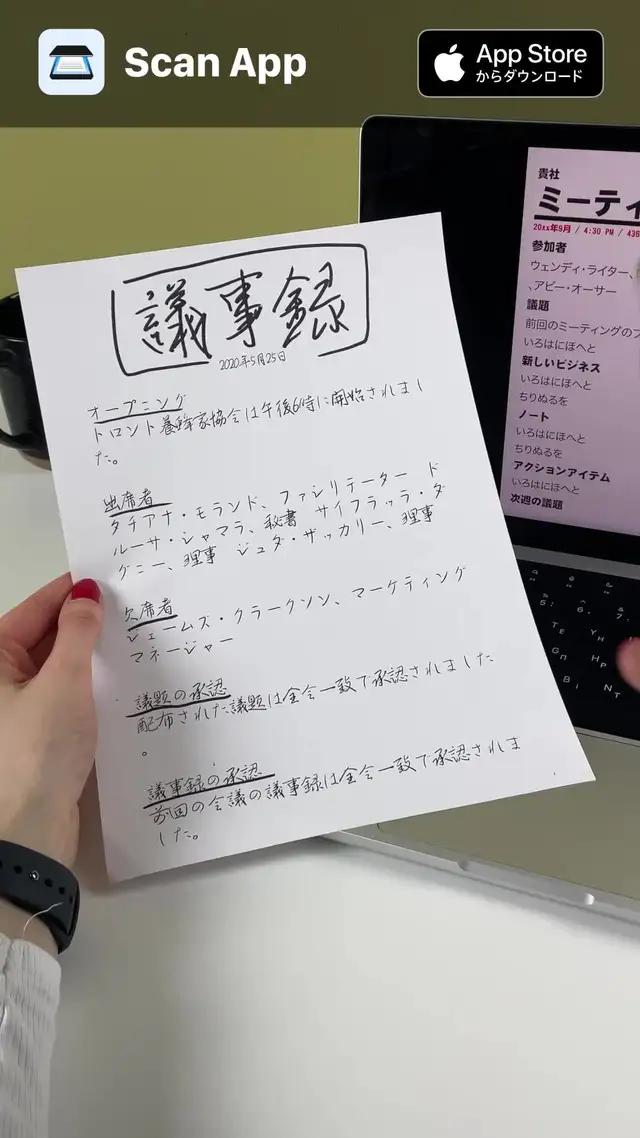 Scan App
App Store
からダウンロード
貴社
ミーティ
20xx年9月 / 4:30 PM / 436
参加者
ウェンディ・ライター、
、アビー・オーサー
議題
前回のミーティングのフ
いろはにほへと
新しいビジネス
いろはにほへと
ちりぬるを
ノート
いろはにほへと
ちりぬるを
アクションアイテム
いろはにほへと
次週の議題
議事録
2020年5月25日
オープニング
トロント養蜂家協会は午後6時に開始されまし
た。
出席者
タチアナ・モランド、ファシリテーター ド
ルーサ・シャマラ、秘書 サイフラッラ・ダ
グニー、理事 ジュダ・ザッカリー、理事
欠席者
ジェームス・クラークソン、マーケティング
マネージャー
議題の承認
配布された議題は全会一致で承認されました
。
議事録の承認
前回の会議の議事録は全会一致で承認されま
した。